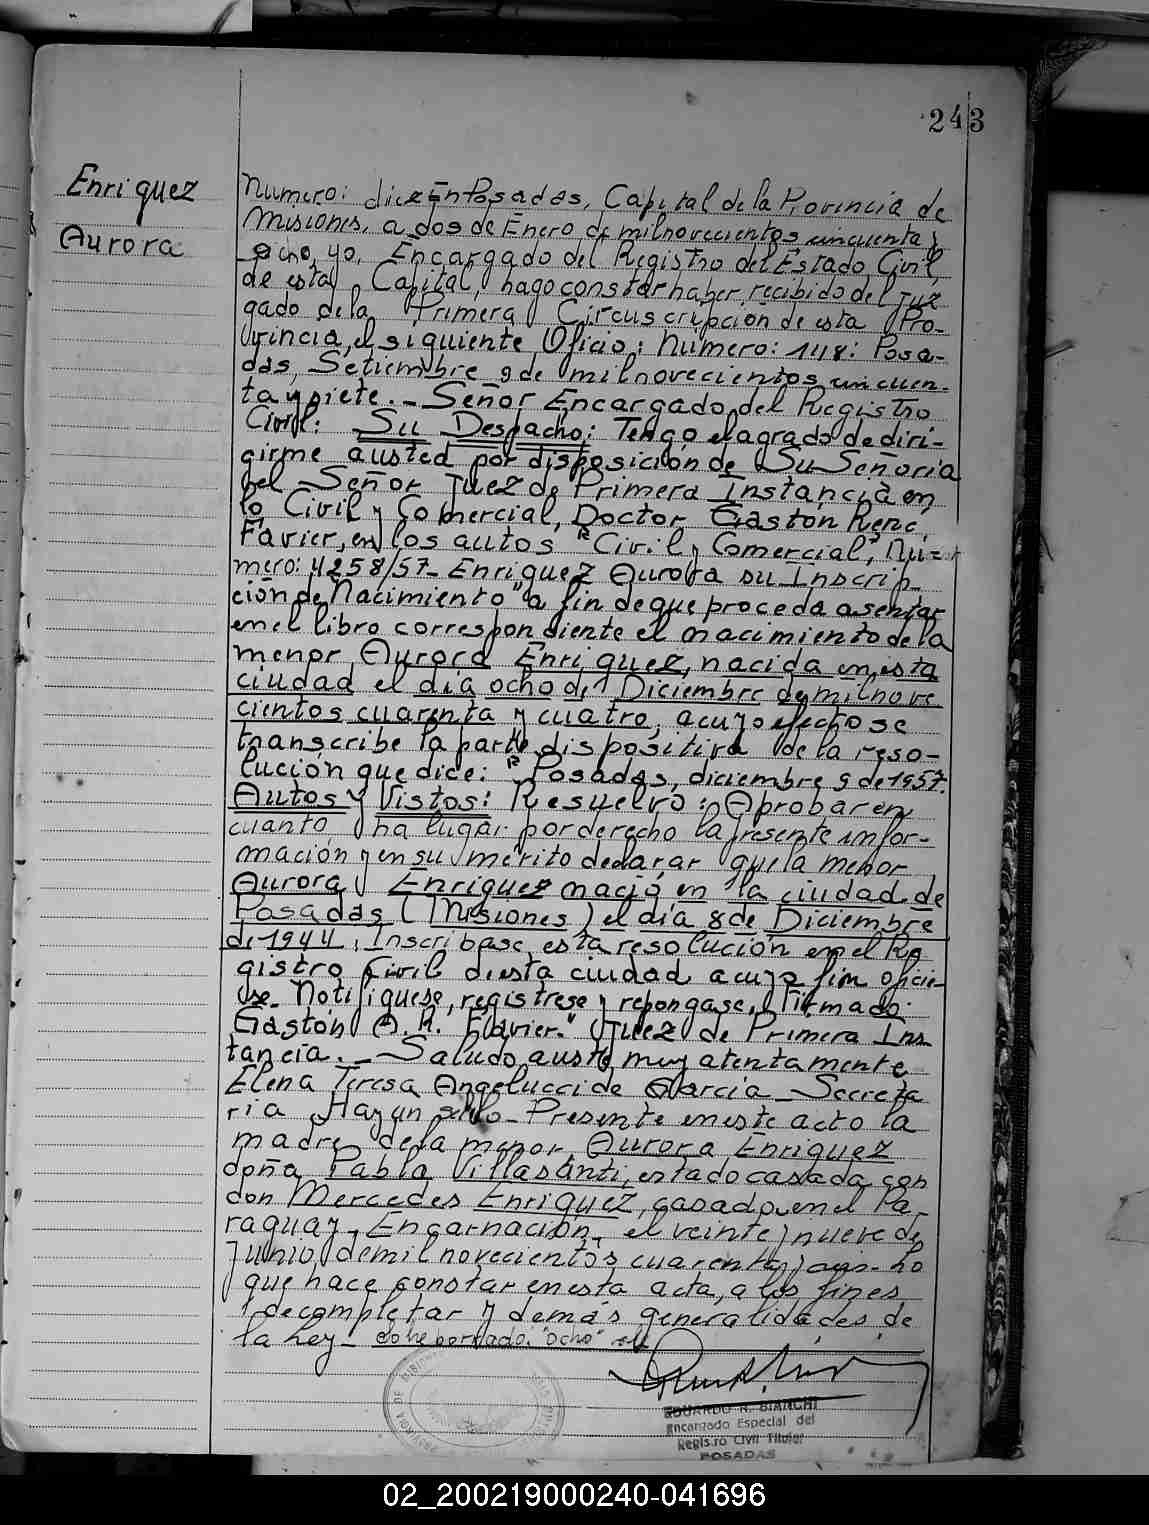 243
Enriquez
Aurora
Numero: diez En Posadas, Capital de la Provincia de
Misiones, a dos de Enero de mil novecientos cincuenta y
ocho, yo, Encargado del Registro del Estado Civil,
de esta Capital, hago constar haber recibido del Juz
gado de la Primera Circuscripción de esta Pro-
vincia, el siguiente Oficio: Numero: 1418: Posa-
das, Setiembre 9 de mil novecientos cincuen-
ta y siete.- Señor Encargado del Registro
Civil: Su Despacho: Tengo el agrado de diri-
girme a usted por disposición de Su Señoria
el Señor Juez de Primera Instancia en
lo Civil y Comercial, Doctor Gastón René
Favier, en los autos "Civil y Comercial", Nú-
mero: 4258/57- Enriquez Aurora su Inscrip-
ción de Nacimiento" a fin de que proceda a sentar
en el libro correspondiente el nacimiento de la
menor Aurora Enriquez, nacida en esta
ciudad el día ocho de Diciembre de mil nove
cientos cuarenta y cuatro, a cuyo efecto se
transcribe la parte dispositiva de la reso-
lución que dice: "Posadas, diciembre 9 de 1957.
Autos y Vistos: Resuelvo: Aprobar en
cuanto ha lugar por derecho la presente infor-
mación y en su mérito declarar que la menor
Aurora Enriquez nació en la ciudad de
Posadas (Misiones) el día 8 de Diciembre
de 1944, Inscribase esta resolución en el Re
gistro Civil de esta ciudad a cuyo fin oficie-
se. Notifiquese, registrese y repongase. Firmado:
Gastón A. R. Favier." Juez de Primera Ins
tancia.- Saludo a usted muy atentamente
Elena Teresa Angelucci de Garcia - Secreta
ria Hay un sello- Presente en este acto la
madre de la menor, Aurora Enriquez
doña Pabla Villasanti, estado casada con
don Mercedes Enriquez, casado en el Pa-
raguay, Encarnación, el veinte y nueve de
Junio de mil novecientos cuarenta y lo
que hace constar en esta acta, a los fines
de completar y demás generalidades de
la Ley- sobre borrado: "ocho" vale
EDUARDO R. BIANCHI
Encargado Especial del
Registro Civil Titular
POSADAS
02_200219000240-041696